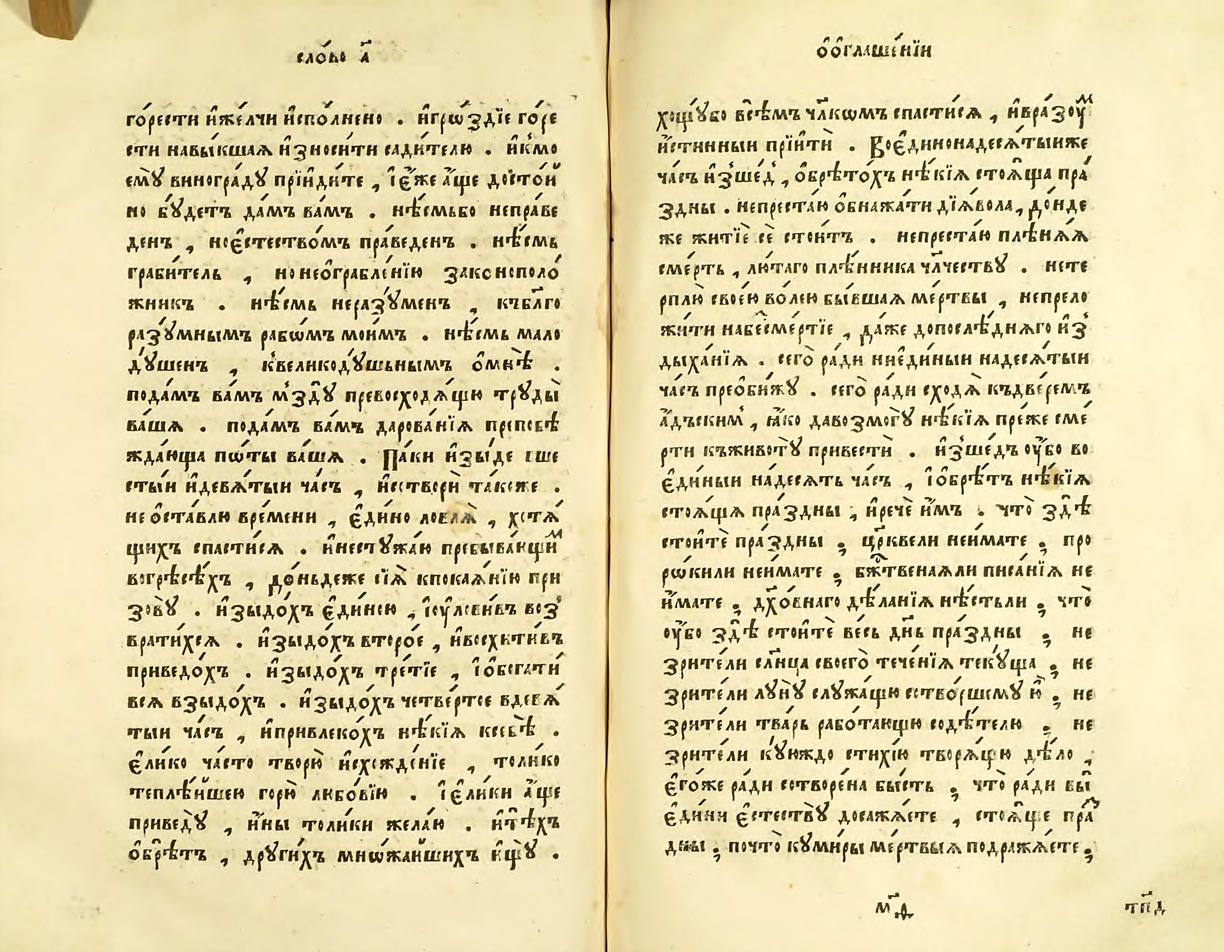 сло́во а҃
го́рести и҆же́лчи и҆спо́лнено . и҆гро́здїе го́ре
сти навы́кшаѧ и҆зноси́ти сади́телю . и҆кмо
емꙋ̀ виногра́дꙋ прїиди́те , і҆є҆́же а҆́ще досто́й
но бꙋ́детъ да́мъ ва́мъ . нѣ́смьбо непра́ве
денъ , ное҆стество́мъ пра́веденъ . нѣ́смь
граби́тель , нонео҆грабле́нїю законополо́
жникъ . нѣ́смь неразꙋ́менъ , къбл҃го
разꙋ́мнымъ рабѡ́мъ мои́мъ . нѣ́смь мало
дꙋ́шенъ , к̾великодꙋ́шьнымъ ѻ҆мнѣ̀ .
пода́мъ ва́мъ м̾здꙋ̀ превосходѧ́щꙋю трꙋды̀
ва́шѧ . пода́мъ ва́мъ дарова́нїѧ препобѣ
жда́юща пѡ́ты ва́шѧ . Па́ки и҆зы́де ше
сты́и и҆девѧ́тыи ча́съ , и҆сотворѝ тако́же .
не ѻ҆ста́влю вре́мени , є҆ди́но ловлѧ̀ , хотѧ́
щихъ спасти́сѧ . и҆нестꙋжа́ю пребыва́ющим
вогрѣсѣ́хъ , до́ньдеже сїѧ̀ кпокаѧ́нїю при
зовꙋ̀ . и҆зыдо́хъ є҆ди́ною , і҆ꙋлови́въ воз̾
врати́хсѧ . и҆зыдо́хъ второ́е , и҆восхити́въ
приведо́хъ . и҆зыдо́хъ тре́тїе , і҆ѻ҆богати́
всѧ взыдо́хъ . и҆зыдо́хъ четве́ртое вдевѧ́
тыи ча́съ , и҆привлеко́хъ нѣ́кїѧ ксебѣ̀ .
є҆ли́ко ча́сто творю̀ и҆схожде́нїе , толи́ко
теплѣ́йшею горю̀ любо́вїю . і҆є҆ли́ки а҆́ще
приведꙋ̀ , и҆́ны толи́ки жела́ю . и҆тѣ́хъ
ѻ҆брѣ́тъ , дрꙋги́хъ мно́жайшихъ и҆щꙋ̀ .
ѻ҆ѻ҆глаше́нїи
хощꙋ́бо всѣ́мъ чл҃кѡмъ спасти́сѧ , и҆вразоу́м
и҆́стинныи прїитѝ . Воє҆динонадесѧ́тыиже
ча́съ и҆з̾ше́д , ѻ҆брѣто́хъ нѣ́кїѧ стоѧ́ща пра́
здны . непреста́ю ѻ҆бнажа́ти дїѧ́вола , до́нде
же житїѐ сѐ стои́тъ . непреста́ю плѣнѧ́ѧ
сме́рть , лю́таго плѣ́нника чл҃чествꙋ . не те
рплю̀ свое́ю во́лею бы́вшаѧ ме́ртвы , непрело
жи́ти набесме́ртїе , да́же допослѣ́днѧго и҆з̾
дыха́нїѧ . сего̀ ра́ди ниє҆ди́ныи надесѧ́тыи
ча́съ преѻ҆би́жꙋ . сего̀ ра́ди сходѧ̀ къдве́ремъ
а҆́дъским̾ , ꙗ҆́ко давозмогꙋ̀ нѣ́кїѧ пре́же сме́
рти къживотꙋ̀ привестѝ . и҆з̾ше́дъ оу҆̀бо во
є҆ди́ныи на́десѧть ча́съ , і҆ѻ҆брѣ́тъ нѣ́кїѧ
стоѧ́щѧ пра́здны , и҆речѐ и҆̀мъ . что̀ здѣ̀
стоитѐ пра́здны ; цр҃квели неи҆́мате ; про
ро́кили неи҆́мате ; бж҃твенаѧли писа́нїѧ не
и҆́мате ; дх҃о́внаго дѣ́ланїѧ нѣ́стьли ; что̀
оу҆́бо здѣ̀ стоитѐ ве́сь дн҃ь пра́здны ; не
зри́тели сл҃нца своего̀ тече́нїѧ текꙋ́ща ; не
зри́тели лꙋнꙋ̀ слꙋжа́щꙋю сотво́ршемꙋ ю҆̀ ; не
зри́тели тва́рь рабо́тающꙋю содѣ́телю ; не
зри́тели ко́юждо стихі́ю творѧ́щꙋю дѣ́ло ,
є҆го́же ра́ди сотворена̀ бы́сть ; что̀ ра́ди вы̀
є҆ди́ни є҆стествꙋ̀ досажда́ете , стоѧ́ще пра́з
дны ; почто̀ кꙋми́ры ме́ртвыѧ подража́ете ;
м҃д
тп҃д